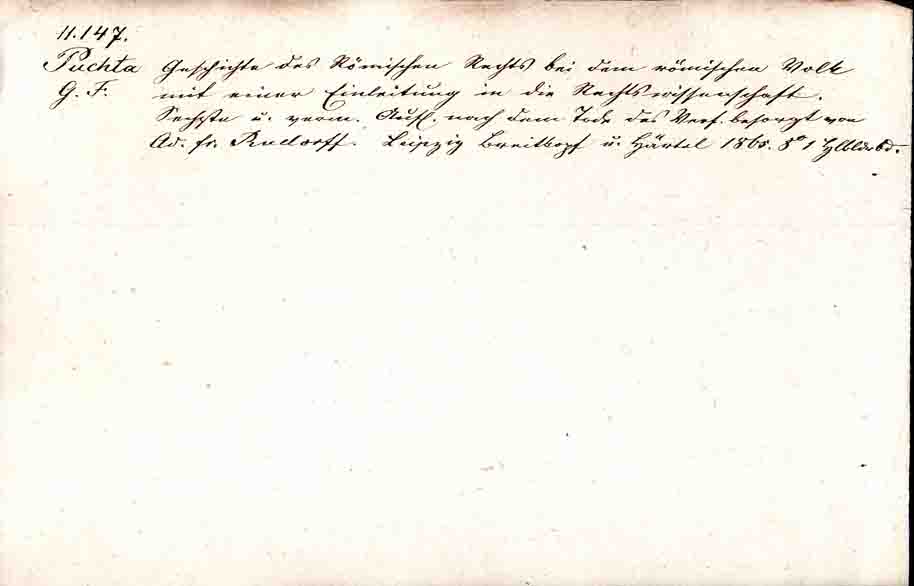 11.147.
Puchta Geschichte des Römischen Rechts bei dem römischen Volk
G. F. mit einer Einleitung in die Rechtswissenschaft.
Sechste u. verm. Aufl. nach dem Tode des Verf. besorgt von
Ad. fr. Rudorff. Leipzig Breitkopf u. Härtel 1865. 8° 1 Hlbldrbd.